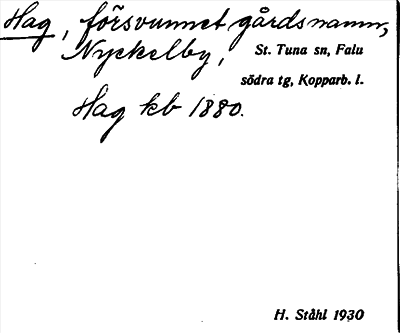 Hag, försvunnet gårdsnamn,
Nyckelby, St. Tuna sn, Falu
södra tg, Kopparb. l.
Hag kb 1880.
H. Ståhl 1930